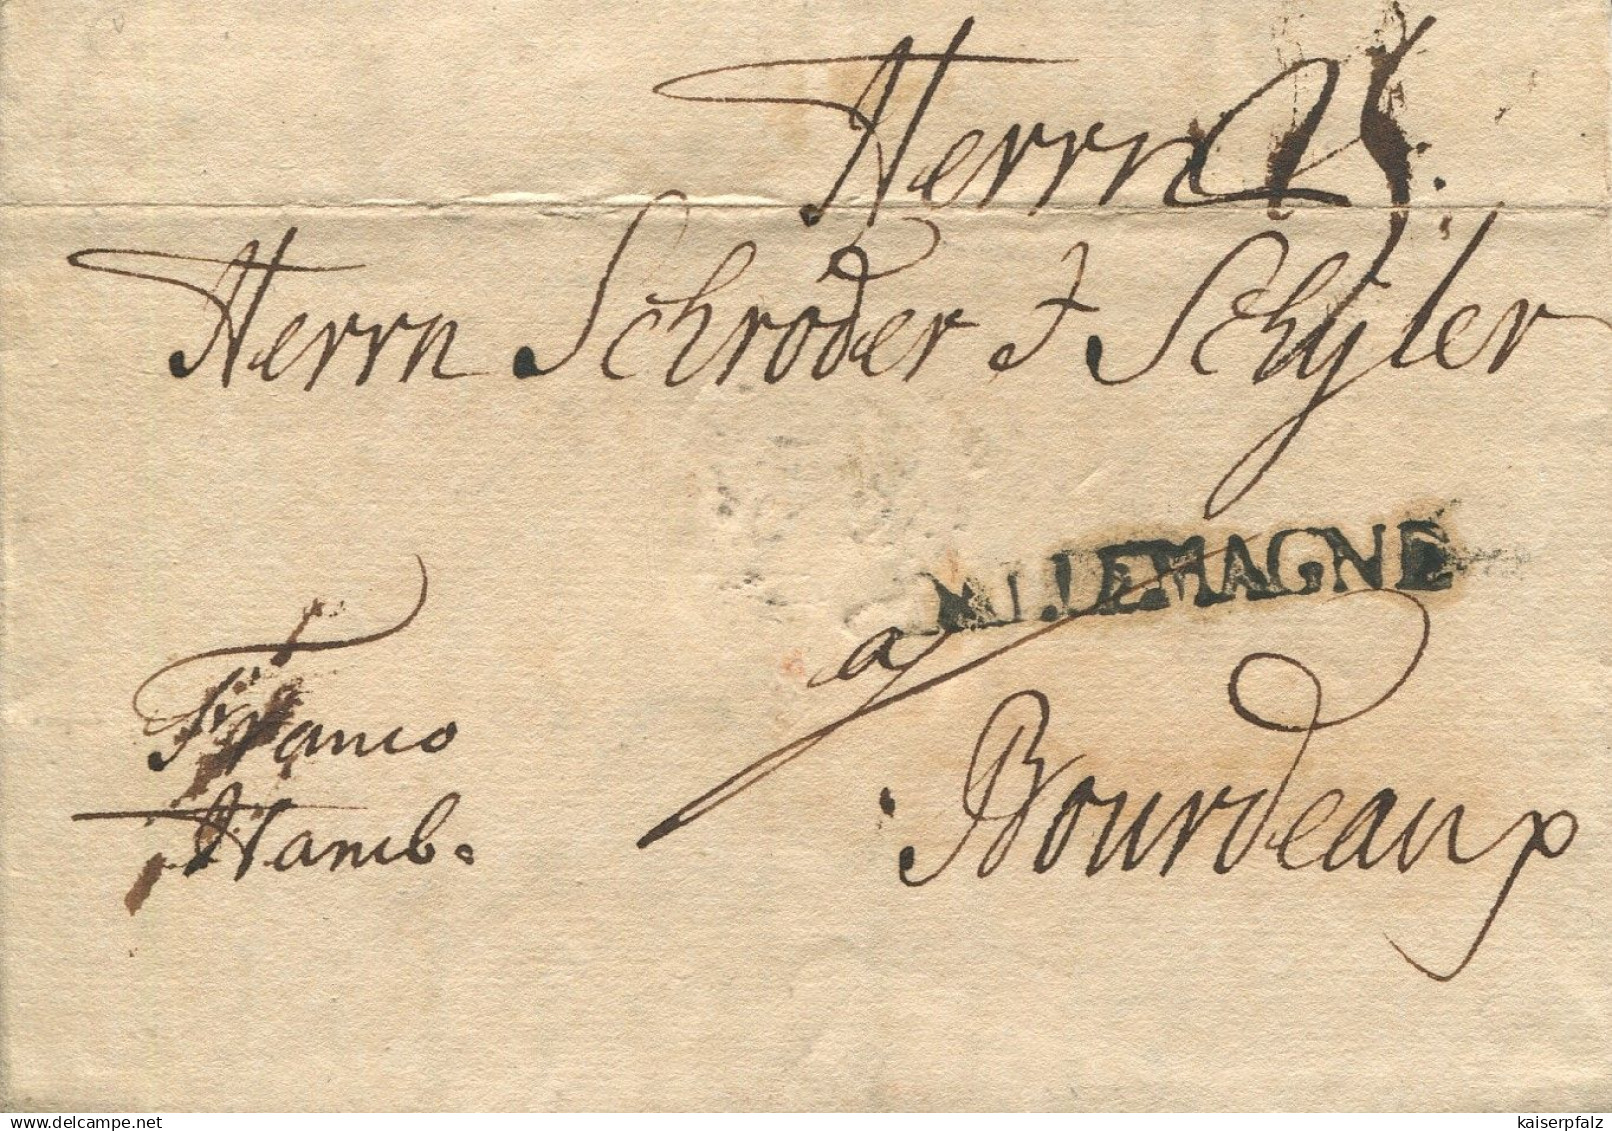 Herrn
Herrn Schröder & Schyler
ALLEMAGNE
a
Bourdeaux
Franco
Hamb.
www.delcampe.net
kaiserpfalz